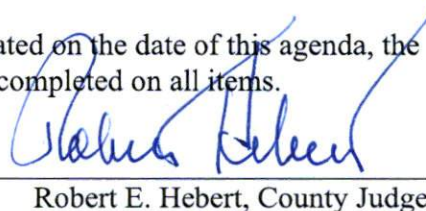 ated on the date of this agenda, the
completed on all items.
Robert Hebert
Robert E. Hebert, County Judge